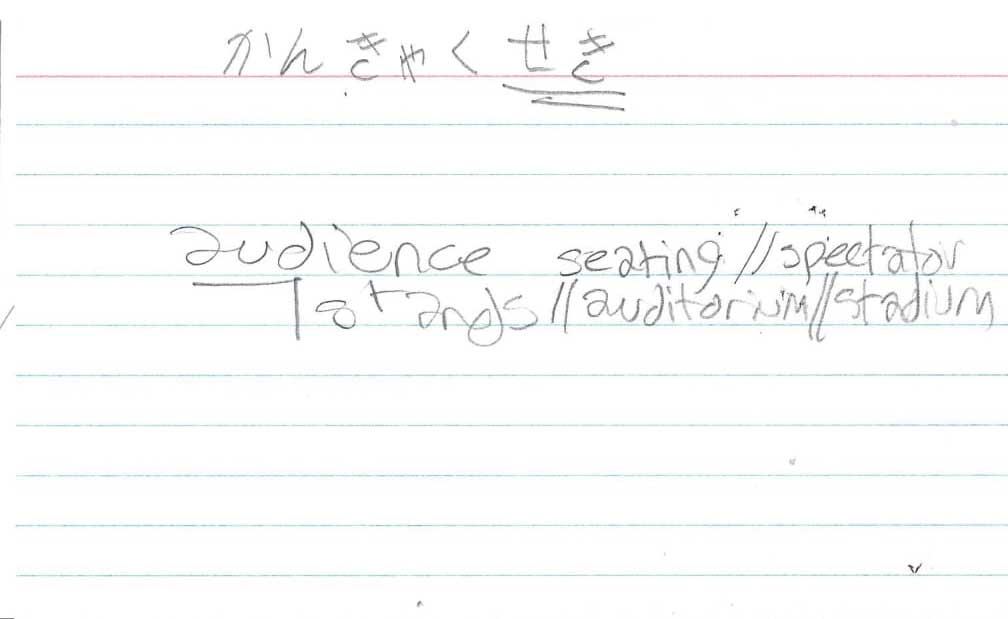 かんきゃくせき
audience seating//spectator
stands//auditorium//stadium